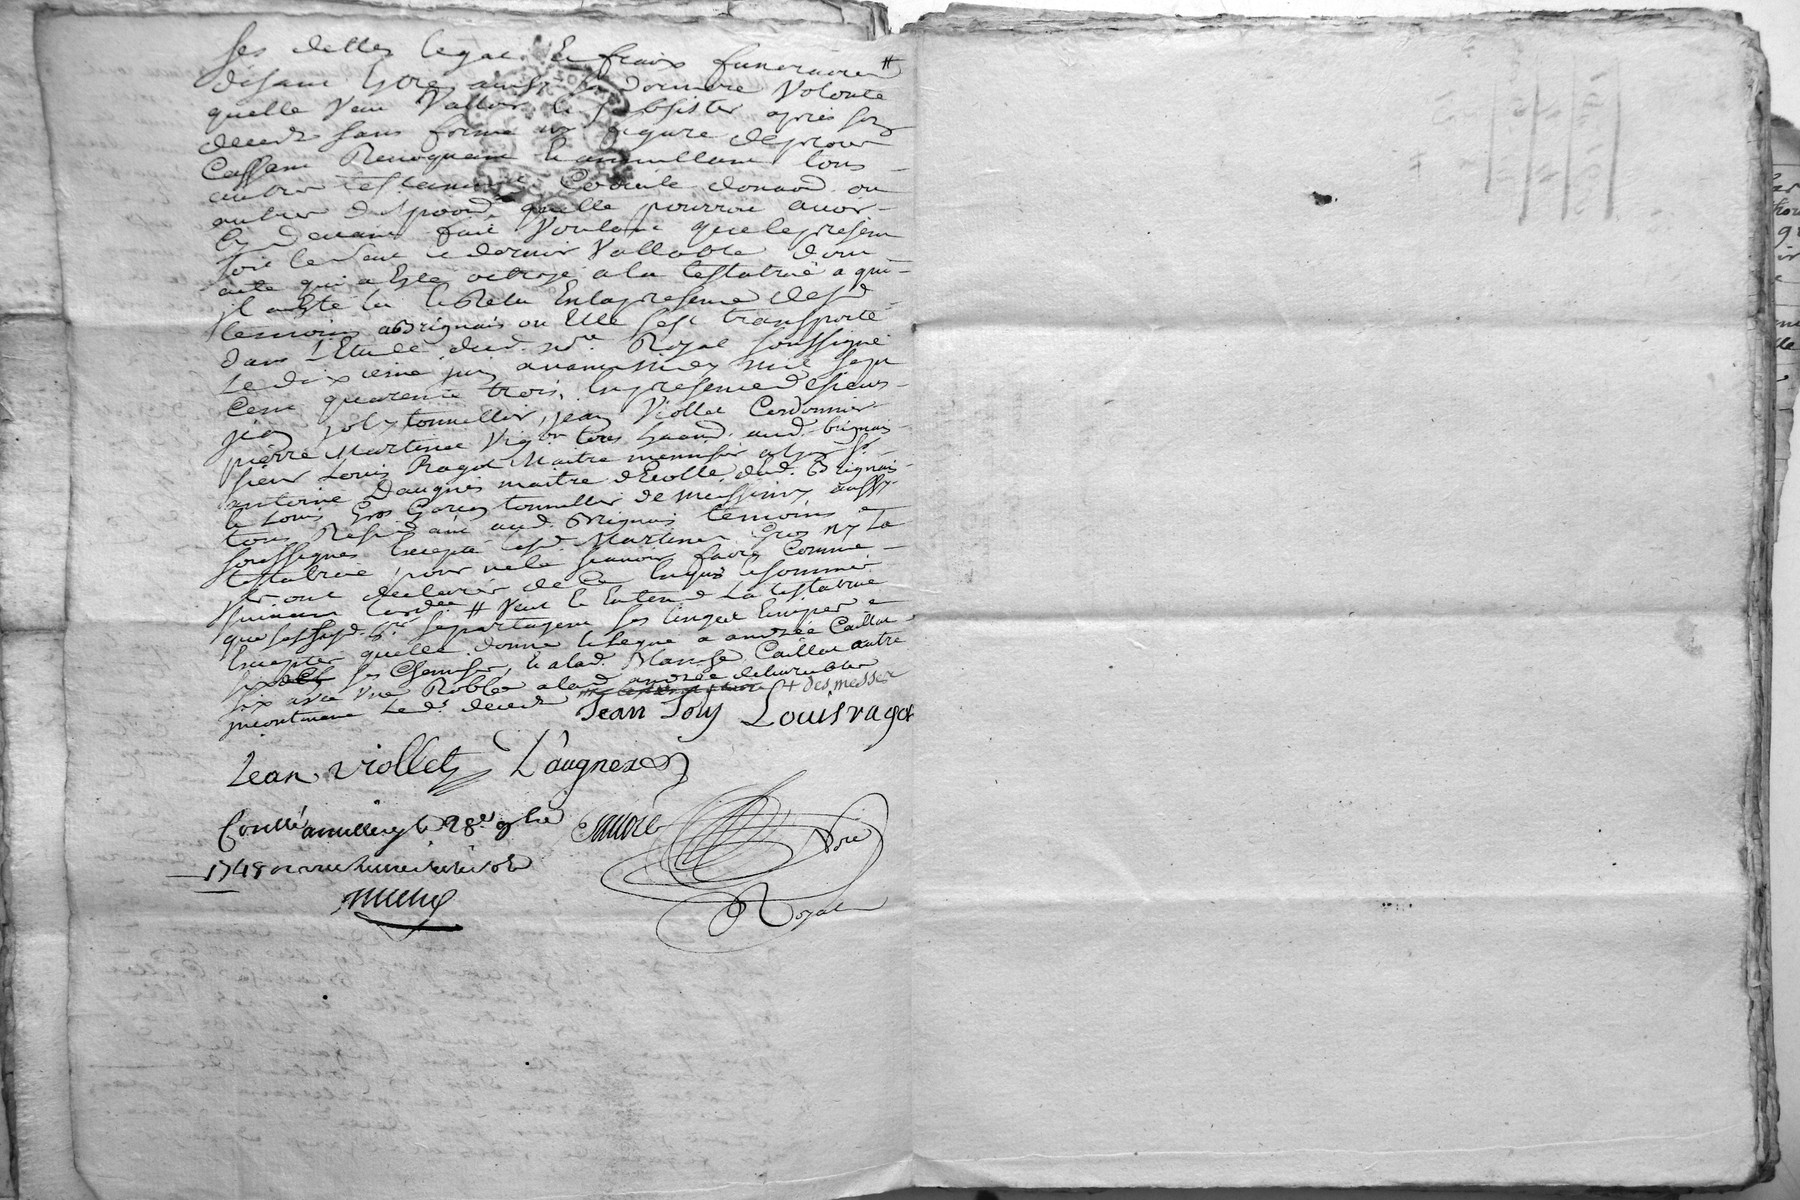 ses dettes legat Et fraix funeraires #
disant Estre ainsy sa derniere Volonté
quelle veut Valloir et subsister apres son
deced sans forme ny figure de proces
Cassant Revoquant Et annullant tous
autres testament Codicile donaõn ou
autres dispoõn quelle pourroit avoir
Cy devant fait Voulant que le present
soit le seul et dernier Vallable dont
acte qui a Esté octroyé a la testatrice a qui
il a esté lu Et Relu En la presence desd
temoins a Brignais ou Elle sest transporté
dans L'Etude dud. Nre. Royal soussigné
Le dixieme juin avant midy mil sept
Cent quarente trois, En presence de sieurs
jean joly tonnellier, jean Viollet Cordonnier
pierre Martinet Vigon tous habit. aud. brignais
sieur Louis Ragot Maitre menuisier
antoine Daugnes maitre d'Ecolle dud. Brignais
et Louis Gros Garçon tonnellier de messimy aussy
tous Residant aud. Brignais temoins
soussignes Excepté lesd. Martinet Gros ny La
testatrice pour ne le sçavoir faire Comme
ils ont declarés de Ce Enquis et sommés
suivant Lordce # Veut Et Entend La testatrice
que sesd. se partagent ses linges
Excepter quelle donne Et legue a andrée Caillot
six ses Chemises, Et a lad. Blanche Caillot autre
six avec Une Robbe a lad andrée delivrable
incontinent Led. deced + des messes
Jean Joly Louis ragot
Jean viollet Daugnes
Conllé a millery le 28e 9bre
1748
Royal